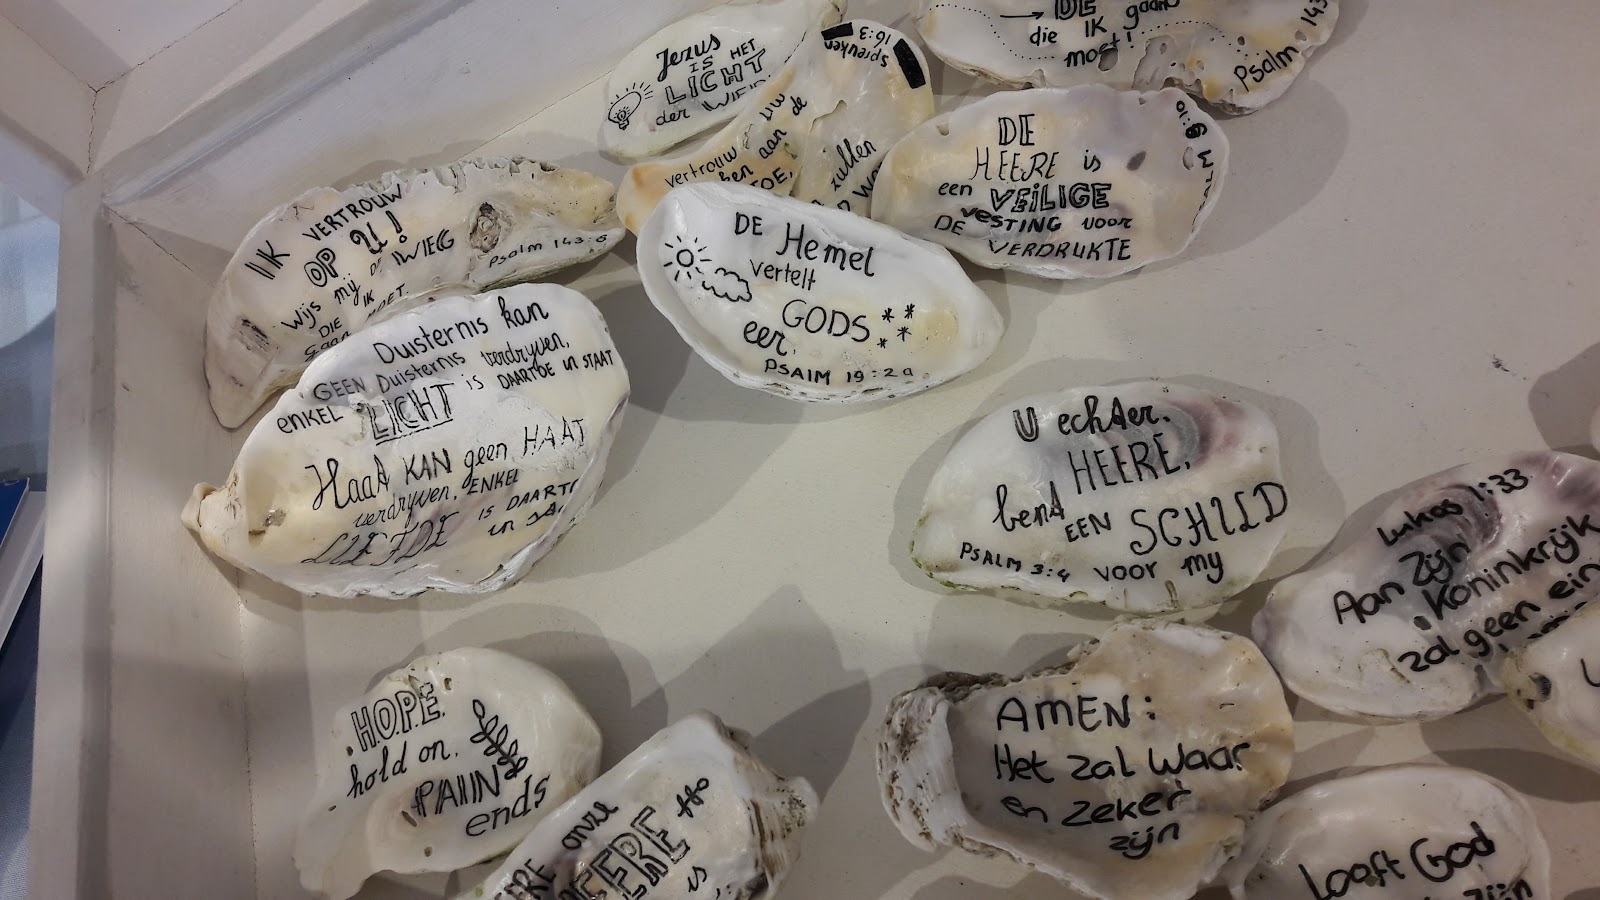 Jezus
IS HET
LICHT
der
spreuken
16:3
vertrouw UW
aan de
zullen
DE
die IK gaan
moet!
Psalm 143
DE
HEERE is
een VEILIGE
VESTING voor
DE VERDRUKTE
IK VERTROUW
OP U!
Wijs mij DE WEG
DIE IK
Gaan MOET.
Psalm 143:8
DE Hemel
vertelt
GODS
eer.
PSALM 19:2a
Duisternis kan
GEEN Duisternis verdryven,
enkel LICHT is DAARTOE IN STAAT
Haat KAN geen HAAT
verdryven, ENKEL
LIEFDE IS
in
U echter.
HEERE,
bent EEN SCHILD
PSALM 3:4 voor my
Lukas 1:33
Aan Zijn
Koninkrijk
zal geen
H.O.P.E.
hold on.
PAIN
ends
onze
is
AMEN:
Het zal Waar
en zeker
zijn
Looft God